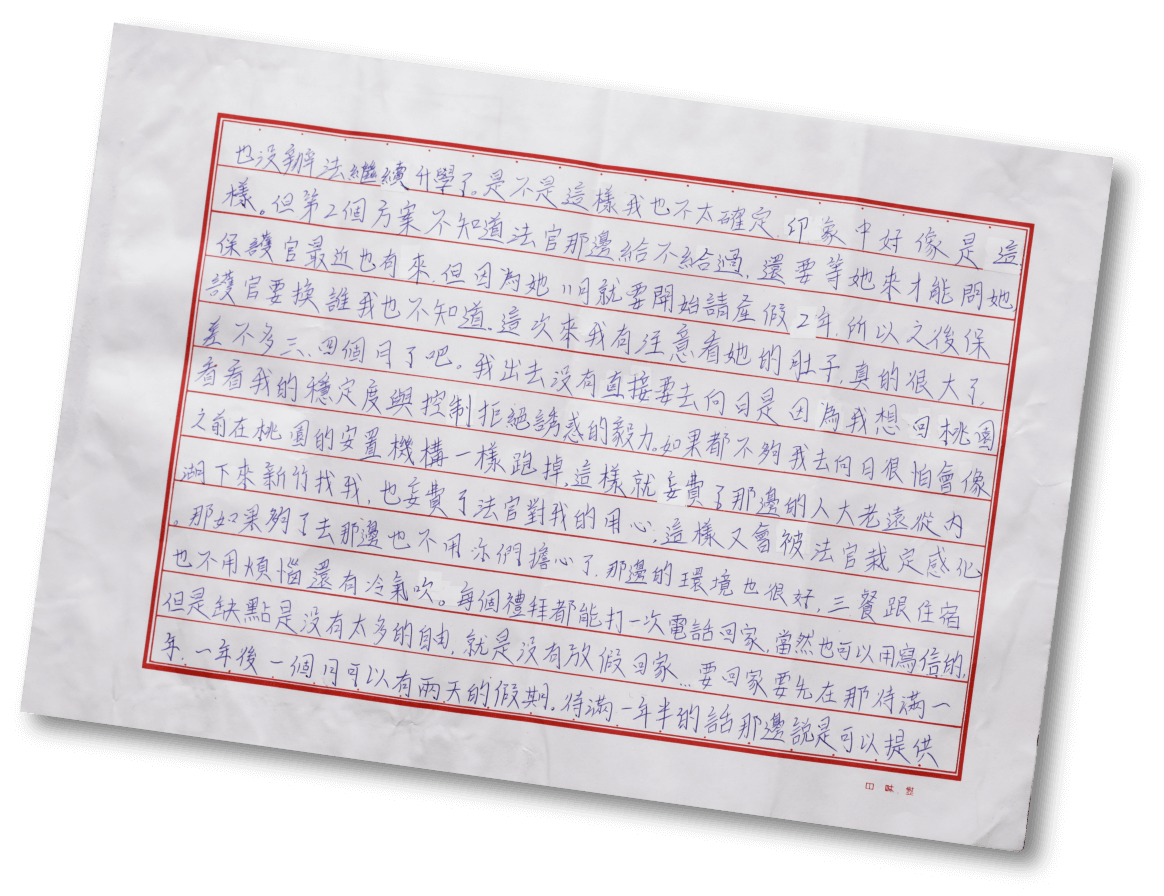 也沒辦法繼續升學了。是不是這樣我也不太確定,印象中好像是這
樣。但第2個方案不知道法官那邊給不給過,還要等她來才能問她,
保護官最近也有來,但因為她11月就要開始請產假2年,所以之後保
護官要換誰我也不知道,這次來我有注意看她的肚子,真的很大了,
差不多三、四個月了吧。我出去沒有直接要去向日是因為我想回桃園
看看我的穩定度與控制拒絕誘惑的毅力。如果都不夠我去向日很怕會像
之前在桃園的安置機構一樣跑掉,這樣就妄費了那邊的人大老遠從內
湖下來新竹找我,也妄費了法官對我的用心,這樣又會被法官裁定感化
。那如果夠了去那邊也不用你們擔心了,那邊的環境也很好,三餐跟住宿
也不用煩惱還有冷氣吹。每個禮拜都能打一次電話回家,當然也可以用寫信的,
但是缺點是沒有太多的自由,就是沒有放假回家…要回家要先在那待滿一
年,一年後一個月可以有兩天的假期。待滿一年半的話那邊說是可以提供